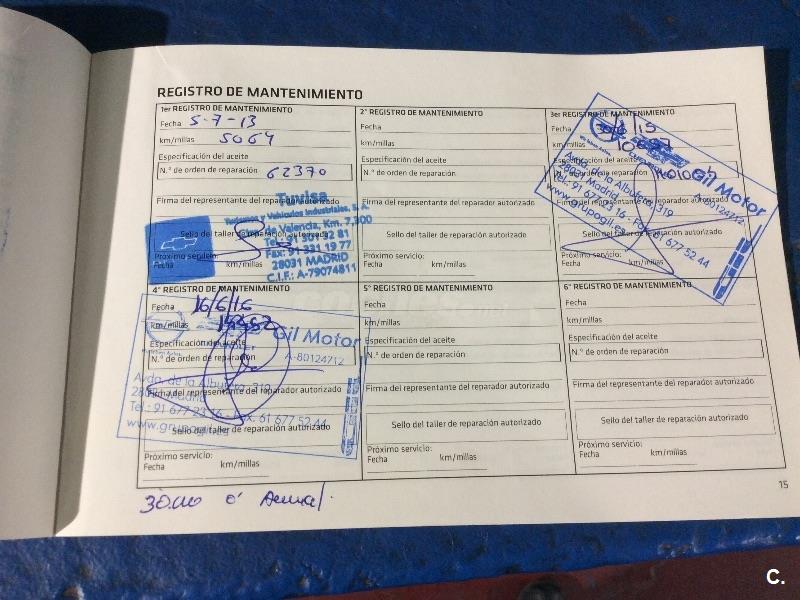 REGISTRO DE MANTENIMIENTO
1er REGISTRO DE MANTENIMIENTO
Fecha 5-7-13
km/millas 5064
Especificación del aceite
N.º de orden de reparación 62370
Firma del representante del reparador autorizado
Tuvisa
Turismos y Vehículos Industriales, S. A.
Valencia, Km. 7,300
Tel. 91 301 32 81
Fax: 91 331 19 77
28031 MADRID
C.I.F.: A-79074811
Sello del taller de reparación autorizado
Próximo servicio:
Fecha km/millas
2º REGISTRO DE MANTENIMIENTO
Fecha
km/millas
Especificación del aceite
N.º de orden de reparación
Firma del representante del reparador autorizado
Sello del taller de reparación autorizado
Próximo servicio:
Fecha km/millas
3er REGISTRO DE MANTENIMIENTO
Fecha
km/millas
Especificación del aceite
N.º de orden de reparación
Gil Motor
A-80124712
Avda. de la Albufera, 319
28031 Madrid
Tel.: 91 677 23 16 - Fax: 61 677 52 44
www.grupogil.es
Sello del taller de reparación autorizado
Próximo servicio:
Fecha km/millas
4º REGISTRO DE MANTENIMIENTO
Fecha 16/6/16
km/millas
Especificación del aceite
N.º de orden de reparación
Gil Motor
A-80124712
Avda. de la Albufera, 319
Firma del representante del reparador autorizado
Madrid
Tel.: 91 677 23 16 - Fax: 61 677 52 44
www.grupogil.es
Sello del taller de reparación autorizado
Próximo servicio:
Fecha km/millas
5º REGISTRO DE MANTENIMIENTO
Fecha
km/millas
Especificación del aceite
N.º de orden de reparación
Firma del representante del reparador autorizado
Sello del taller de reparación autorizado
Próximo servicio:
Fecha km/millas
6º REGISTRO DE MANTENIMIENTO
Fecha
km/millas
Especificación del aceite
N.º de orden de reparación
Firma del representante del reparador autorizado
Sello del taller de reparación autorizado
Próximo servicio:
Fecha km/millas
30.000 ó Anual.
15
C.